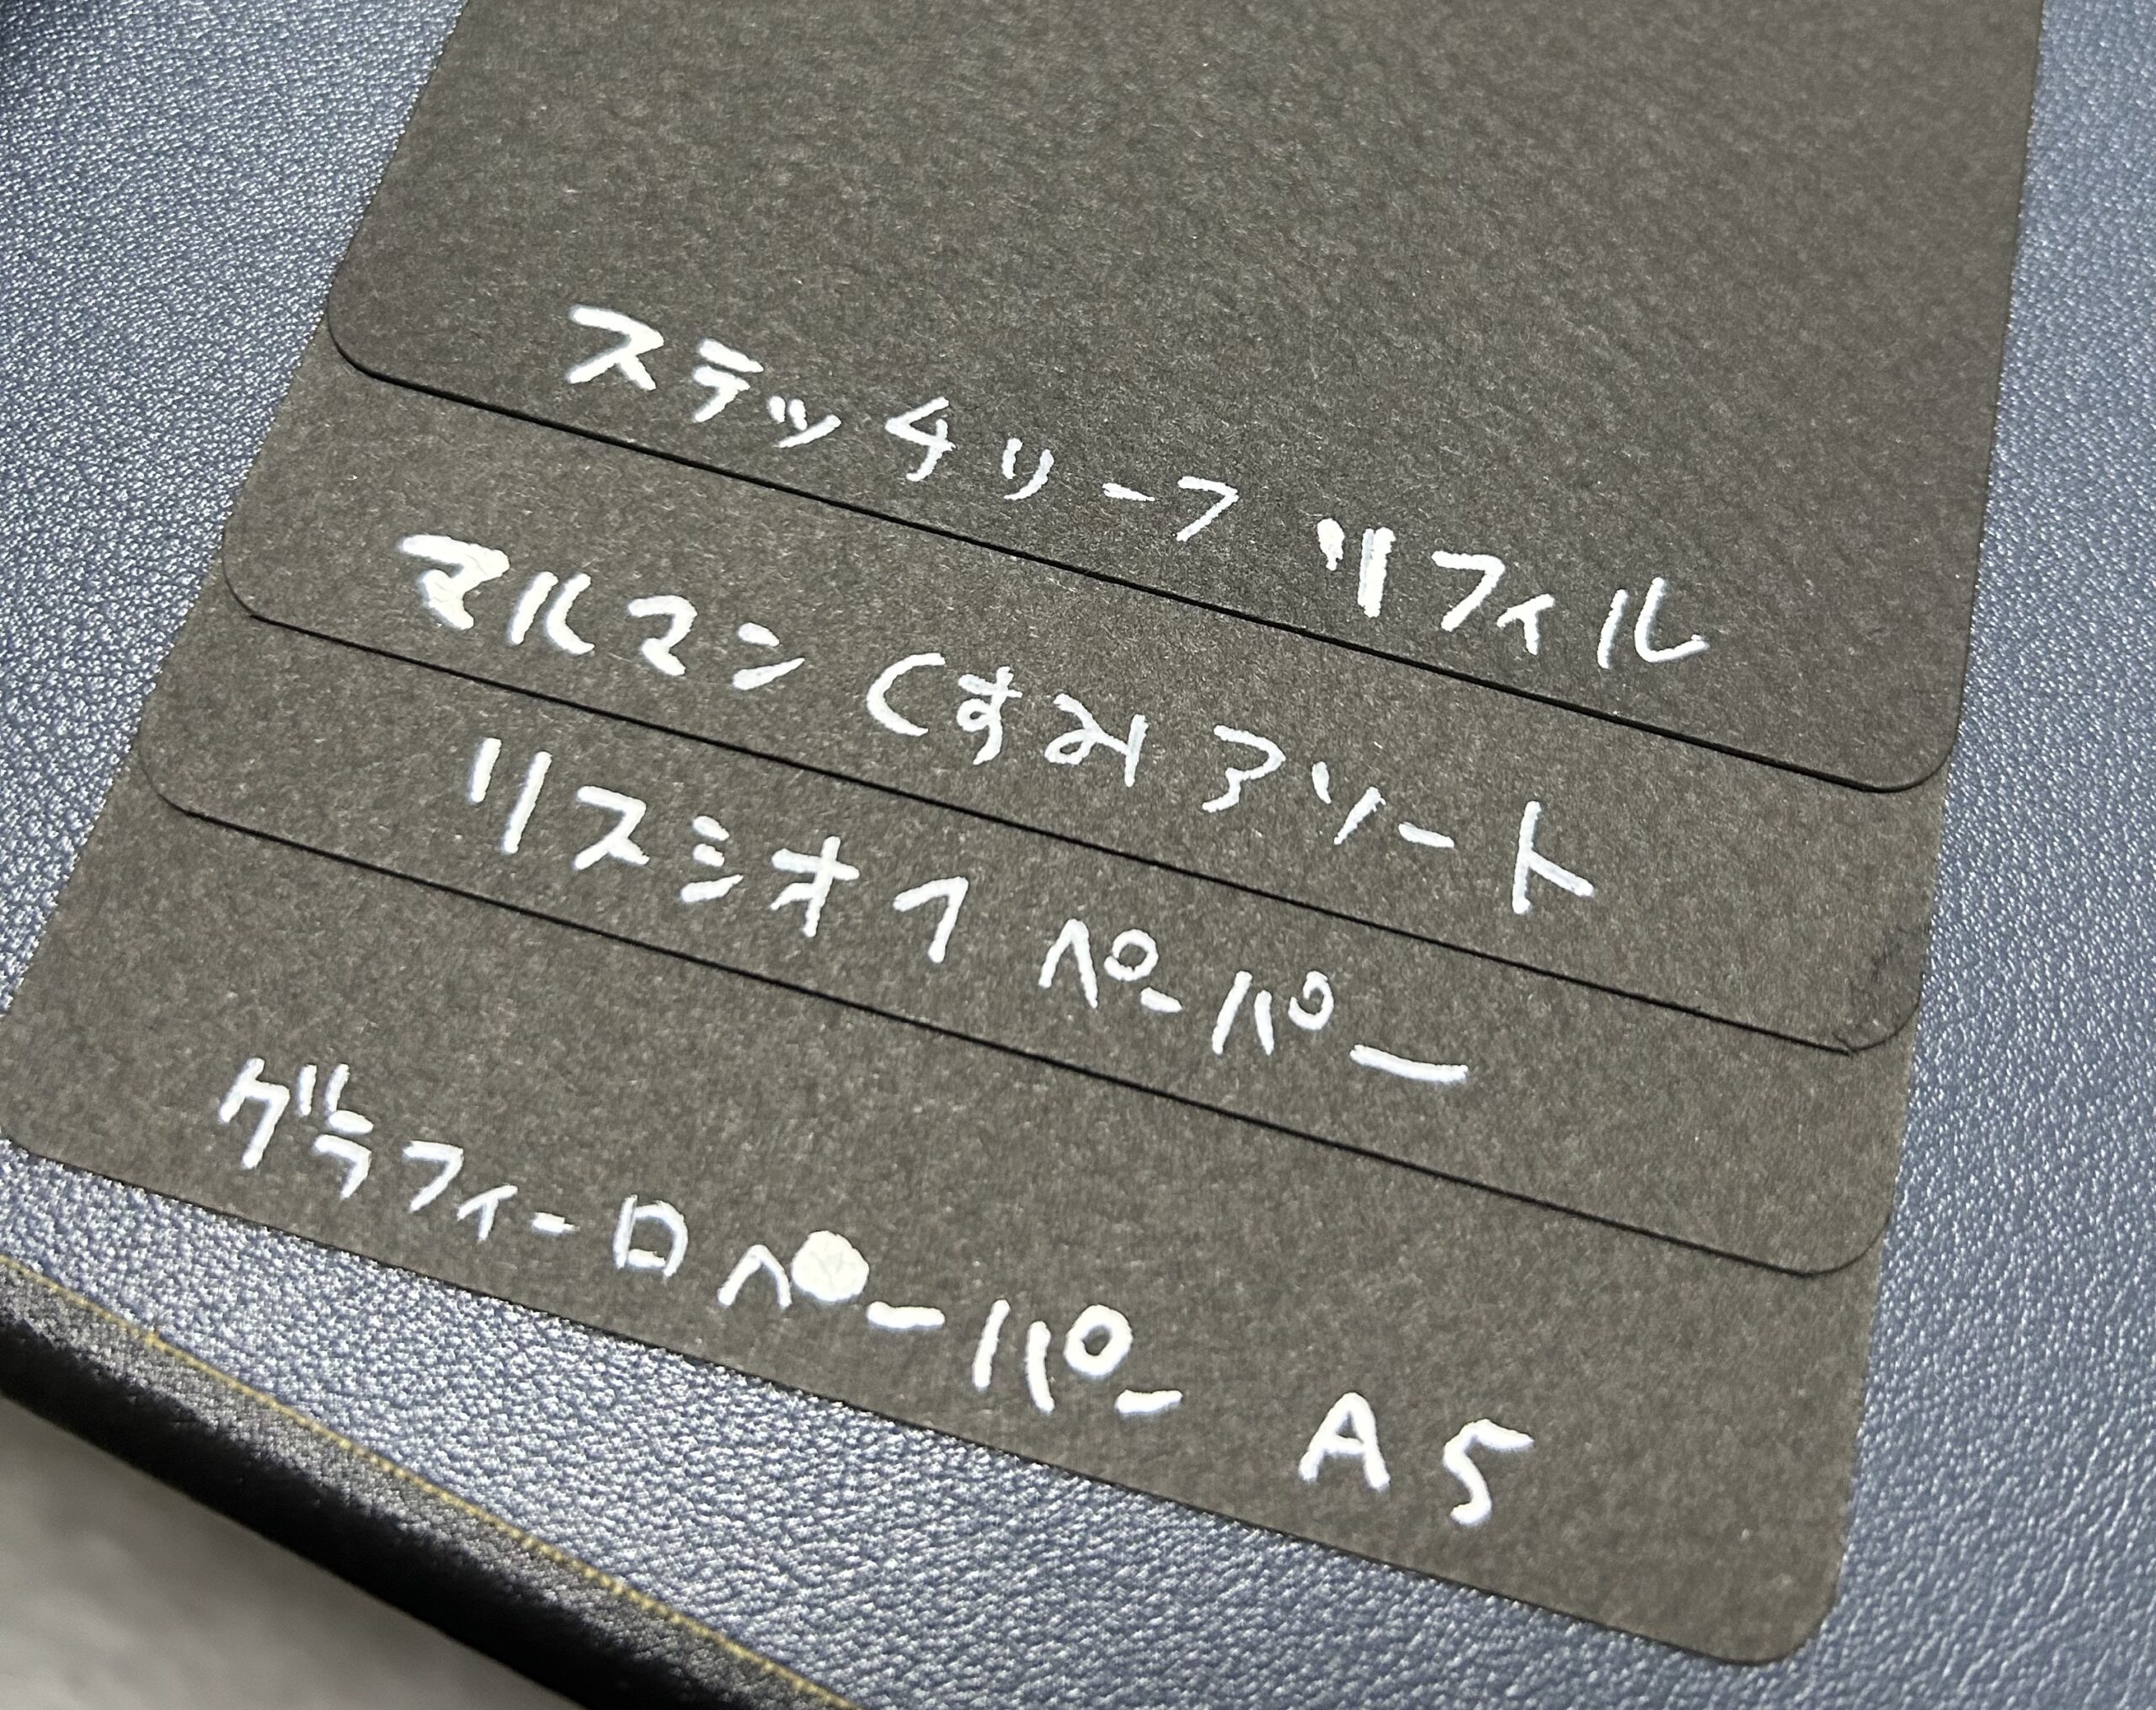 ステッチリーフ リフィル
マルマン くすみアソート
リスシオ1 ペーパー
グラフィーロペーパー A5